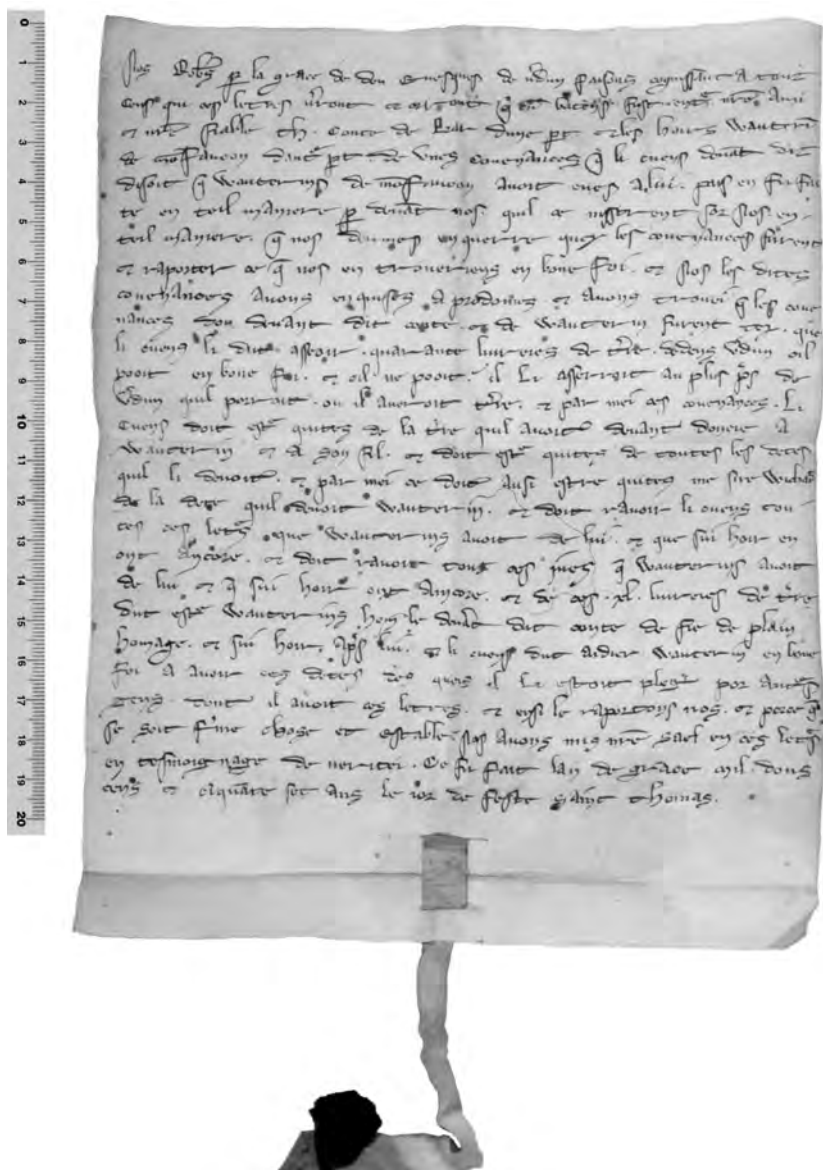 Nos Rob's p la grace de deu Evesques de v'dun faisons cognissant a touz
ceus qui ces letres v'ront et orront q cu bestens fust entre nre ami
et nre fiable th. Conte de Bar d'une pt et les hoirs Wauterin
de d'autre pt de unes covenances q li cuens devat dit
disoit q Wauterins de avoit eues a lui. pais en fu fai
te en teil maniere p devat nos. quil se missirent sor nos. en
teil maniere. q nos deviens enquerre queix les covenances furent
et raporter ce q nos en troveriens en bone foi. et nos les dites
covenances avons enquises a prodomes et avons trovei q les cove
nances dou devant dit conte. et de Wauterin furent teix. que
li cuens li dut asseoir. quarante livreies de t're. dedens v'dun oil
pooit en bone foi. et oil ne pooit. il li asserroit au plus ps de
v'dun quil porroit. ou il averoit t're. et par mei ces covenances. Li
Cuens doit estre quites de la t're quil avoit devant donere a
Wauterin. et a son fil. et doit estre quites de toutes les detes
quil li devoit. et par mei ce doit ausi estre quites me sire
de la dete quil devoit Wauterin. et doit ravoir li cuens tou
tes ces letres que Wauterins avoit de lui. et que sui hoir en
ont ancore. et doit ravoir tous ces q Wauterins avoit
de lui et q sui hoir ont ancore. et de ces .xl. livreies de t're
dut estre Wauterins hom le devat dit conte de fie de plain
homage. et sui hoir aps lui. et li cuens dut aidier Wauterin en bone
foi a avoir ces detes des queis il li estoit pleges por
gens. dont il avoit ces letres. et ensi le raportons nos. et por ce q
se soit f'me chose et estable. nos avons mis nre sael en ces letres
en tesmoignage de veritei. Ce fu fait lan de grace. mil. dous
cens et cinquate set ans le ior de feste saint thomas.
0
1
2
3
4
5
6
7
8
9
10
11
12
13
14
15
16
17
18
19
20